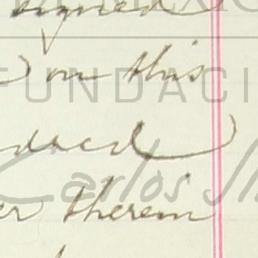 signed
) on this
FUNDACI
deed )
Carlos Sl
er therein